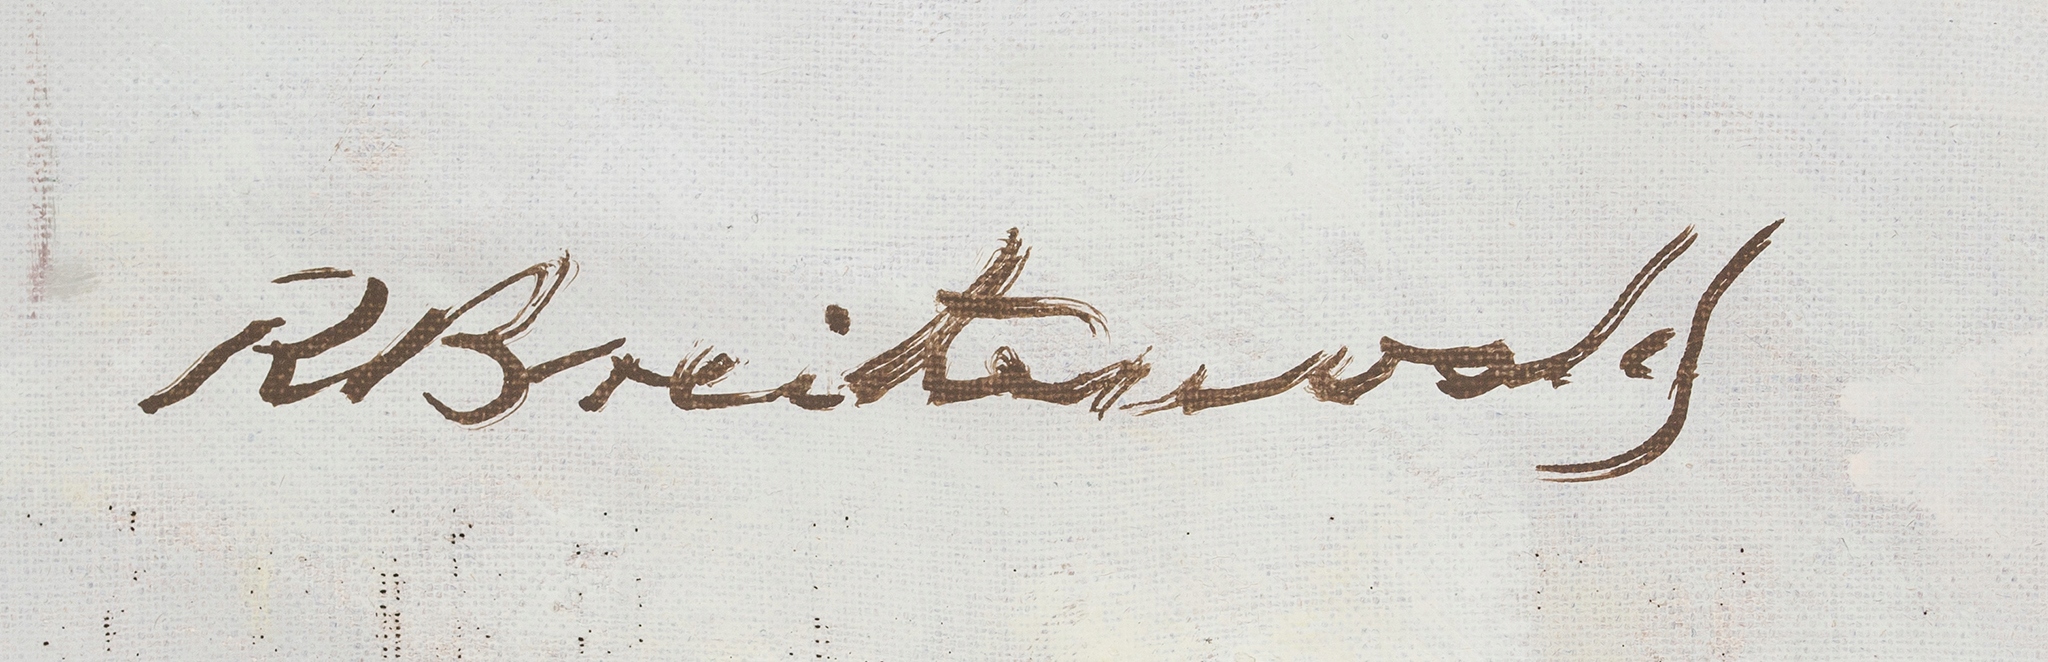 R Breitenwolf